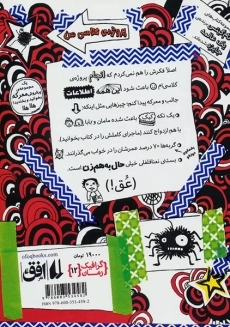 پروژه‌ی کلاسی من
اصلاً فکرش را هم نمی‌کردم که انجام پروژه‌ی
کلاسی‌ام باعث شود این همه اطلاعات
جالب و معرکه پیدا کنم؛ چیزهایی مثل اینکه:
یک تکه کیک باعث شده مامان و بابا
با هم ازدواج کنند (ماجرای کاملش را در کتاب بخوانید).
گربه‌ها ۷۰ درصد عمرشان را در خواب می‌گذرانند.
بستنی تنافلفلی خیلی حال‌به‌هم‌زن است.
(عُق!)
۱۹۰۰۰ تومان
ofoqbooks.com
978-600-353-458-2
رمان گرافیک {۱۲}
افق